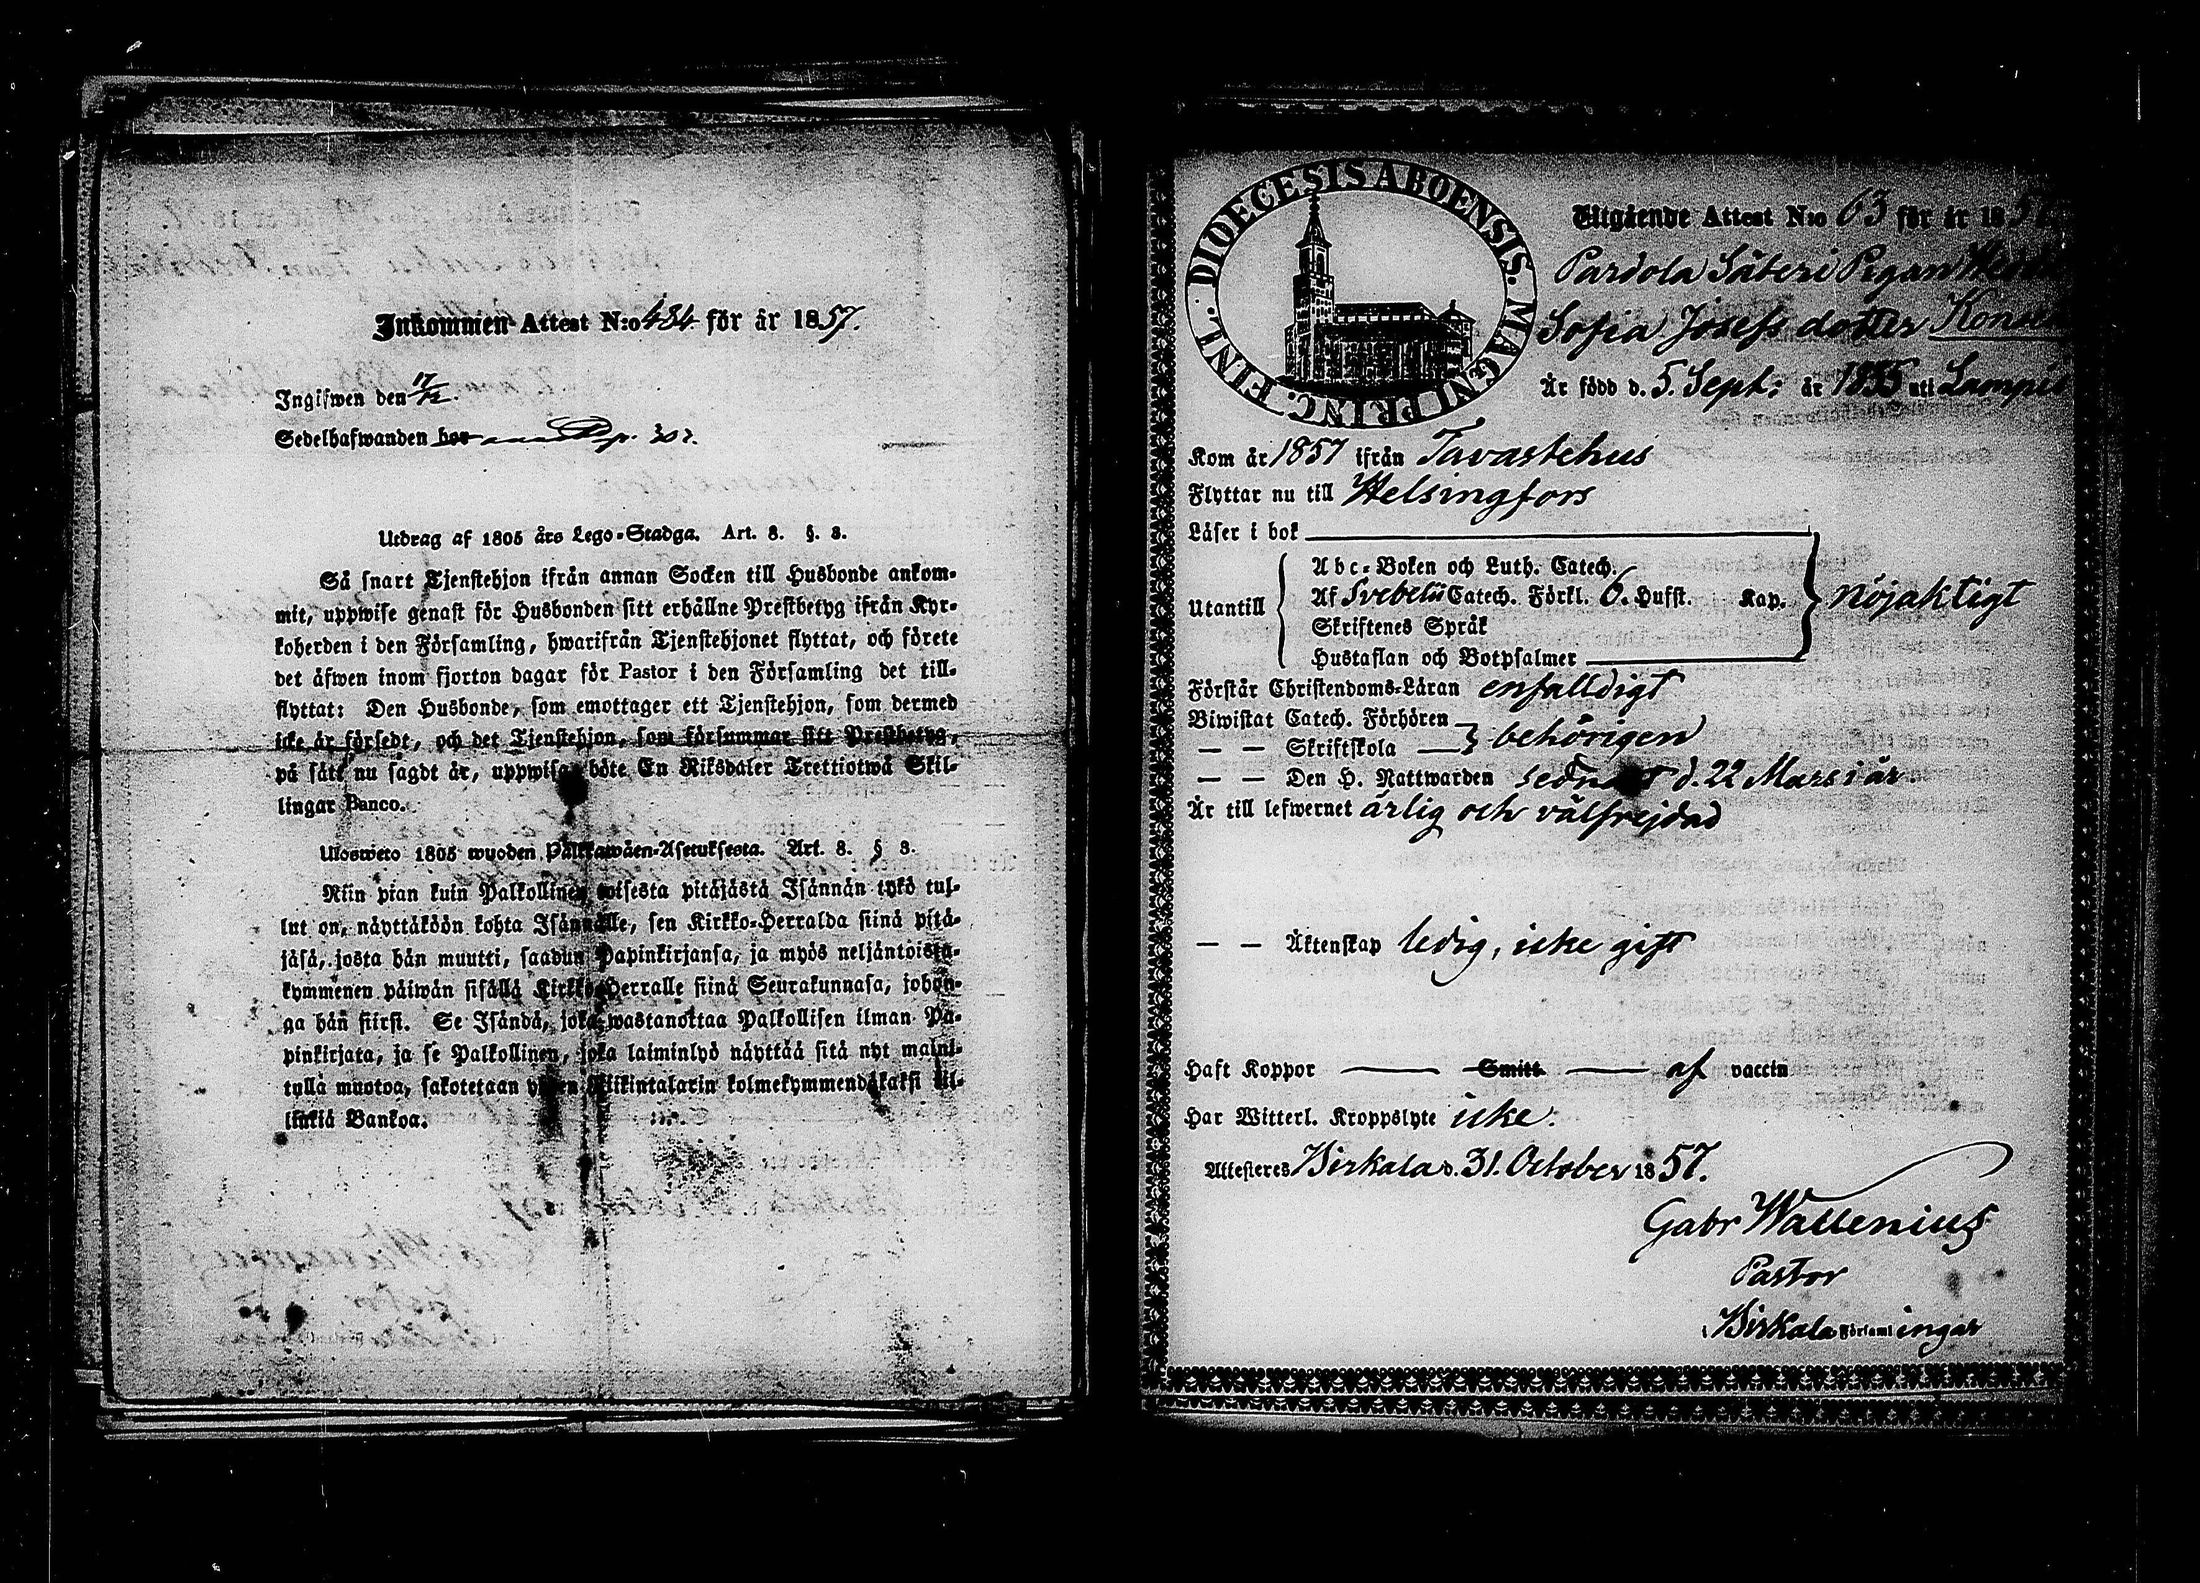 Inkommen Attest N:o 484 för år 1857.
Ingifwen den 17/12.
Sedelhafwanden bor p. 302.
Utdrag af 1805 års Lego-Stadga. Art. 8. §. 8.
Så snart Tjenstehjon ifrån annan Socken till Husbonde ankom-
mit, uppwise genast för Husbonden sitt erhållne Prestbetyg ifrån Kyr-
koherden i den Församling, hwarifrån Tjenstehjonet flyttat, och förete
det äfwen inom fjorton dagar för Pastor i den Församling det till-
flyttat: Den Husbonde, som emottager ett Tjenstehjon, som dermed
icke är försedt, och det Tjenstehjon, som försummar sitt Prestbetyg,
på sätt nu sagdt är, uppwisa, böte En Riksdaler Trettiotwå Skil-
lingar Banco.
Ulosweto 1805 wuoden Palkkawäen-Asetuksesta. Art. 8. § 8.
Niin pian kuin Palkollinen toisesta pitäjästä Isännän tykö tul-
lut on, näyttäköön kohta Isännälle, sen Kirkko-Herralda siinä pitä-
jäsä, josta hän muutti, saadun Papinkirjansa, ja myös neljäntoista-
kymmenen päiwän sisällä Kirkko-Herralle siinä Seurakunnasa, johon-
ga hän siirsi. Se Isändä, joka wastanottaa Palkollisen ilman Pa-
pinkirjata, ja se Palkollinen, joka laiminlyö näyttää sitä nyt maini-
tulla muotoa, sakotetaan yhden Riikintalarin kolmekymmendäkaksi kil-
linkiä Bankoa.
DIOECESIS ABOENSIS. MAGNI PRINC. FINL.
Utgående Attest N:o 63 för år 1857
Pardola Säteri Pigan
Sofia Josefs dotter
Är född d. 5. Sept. år 1835 uti
Kom år 1857 ifrån Tavastehus
Flyttar nu till Helsingfors
Läser i bok
Utantill
Abc-Boken och Luth. Catech.
Af Svebelii Catech. Förkl. 6. Hufst. Kap.
Skriftenes Språk
Hustaflan och Botpsalmer
nöjaktigt
Förstår Christendoms-Läran enfalldigt
Biwistat Catech. Förhören
— — Skriftskola — behörigen
— — Den H. Nattwarden sednast d. 22 Mars i år.
Är till lefwernet ärlig och välfrejdad
— — Äktenskap ledig, icke gift
Haft Koppor — Smitt — af vaccin
Har Witterl. Kroppslyte icke.
Attesteres Birkala d. 31. October 1857.
Gabr Wallenius
Pastor
i Birkala Församlingar